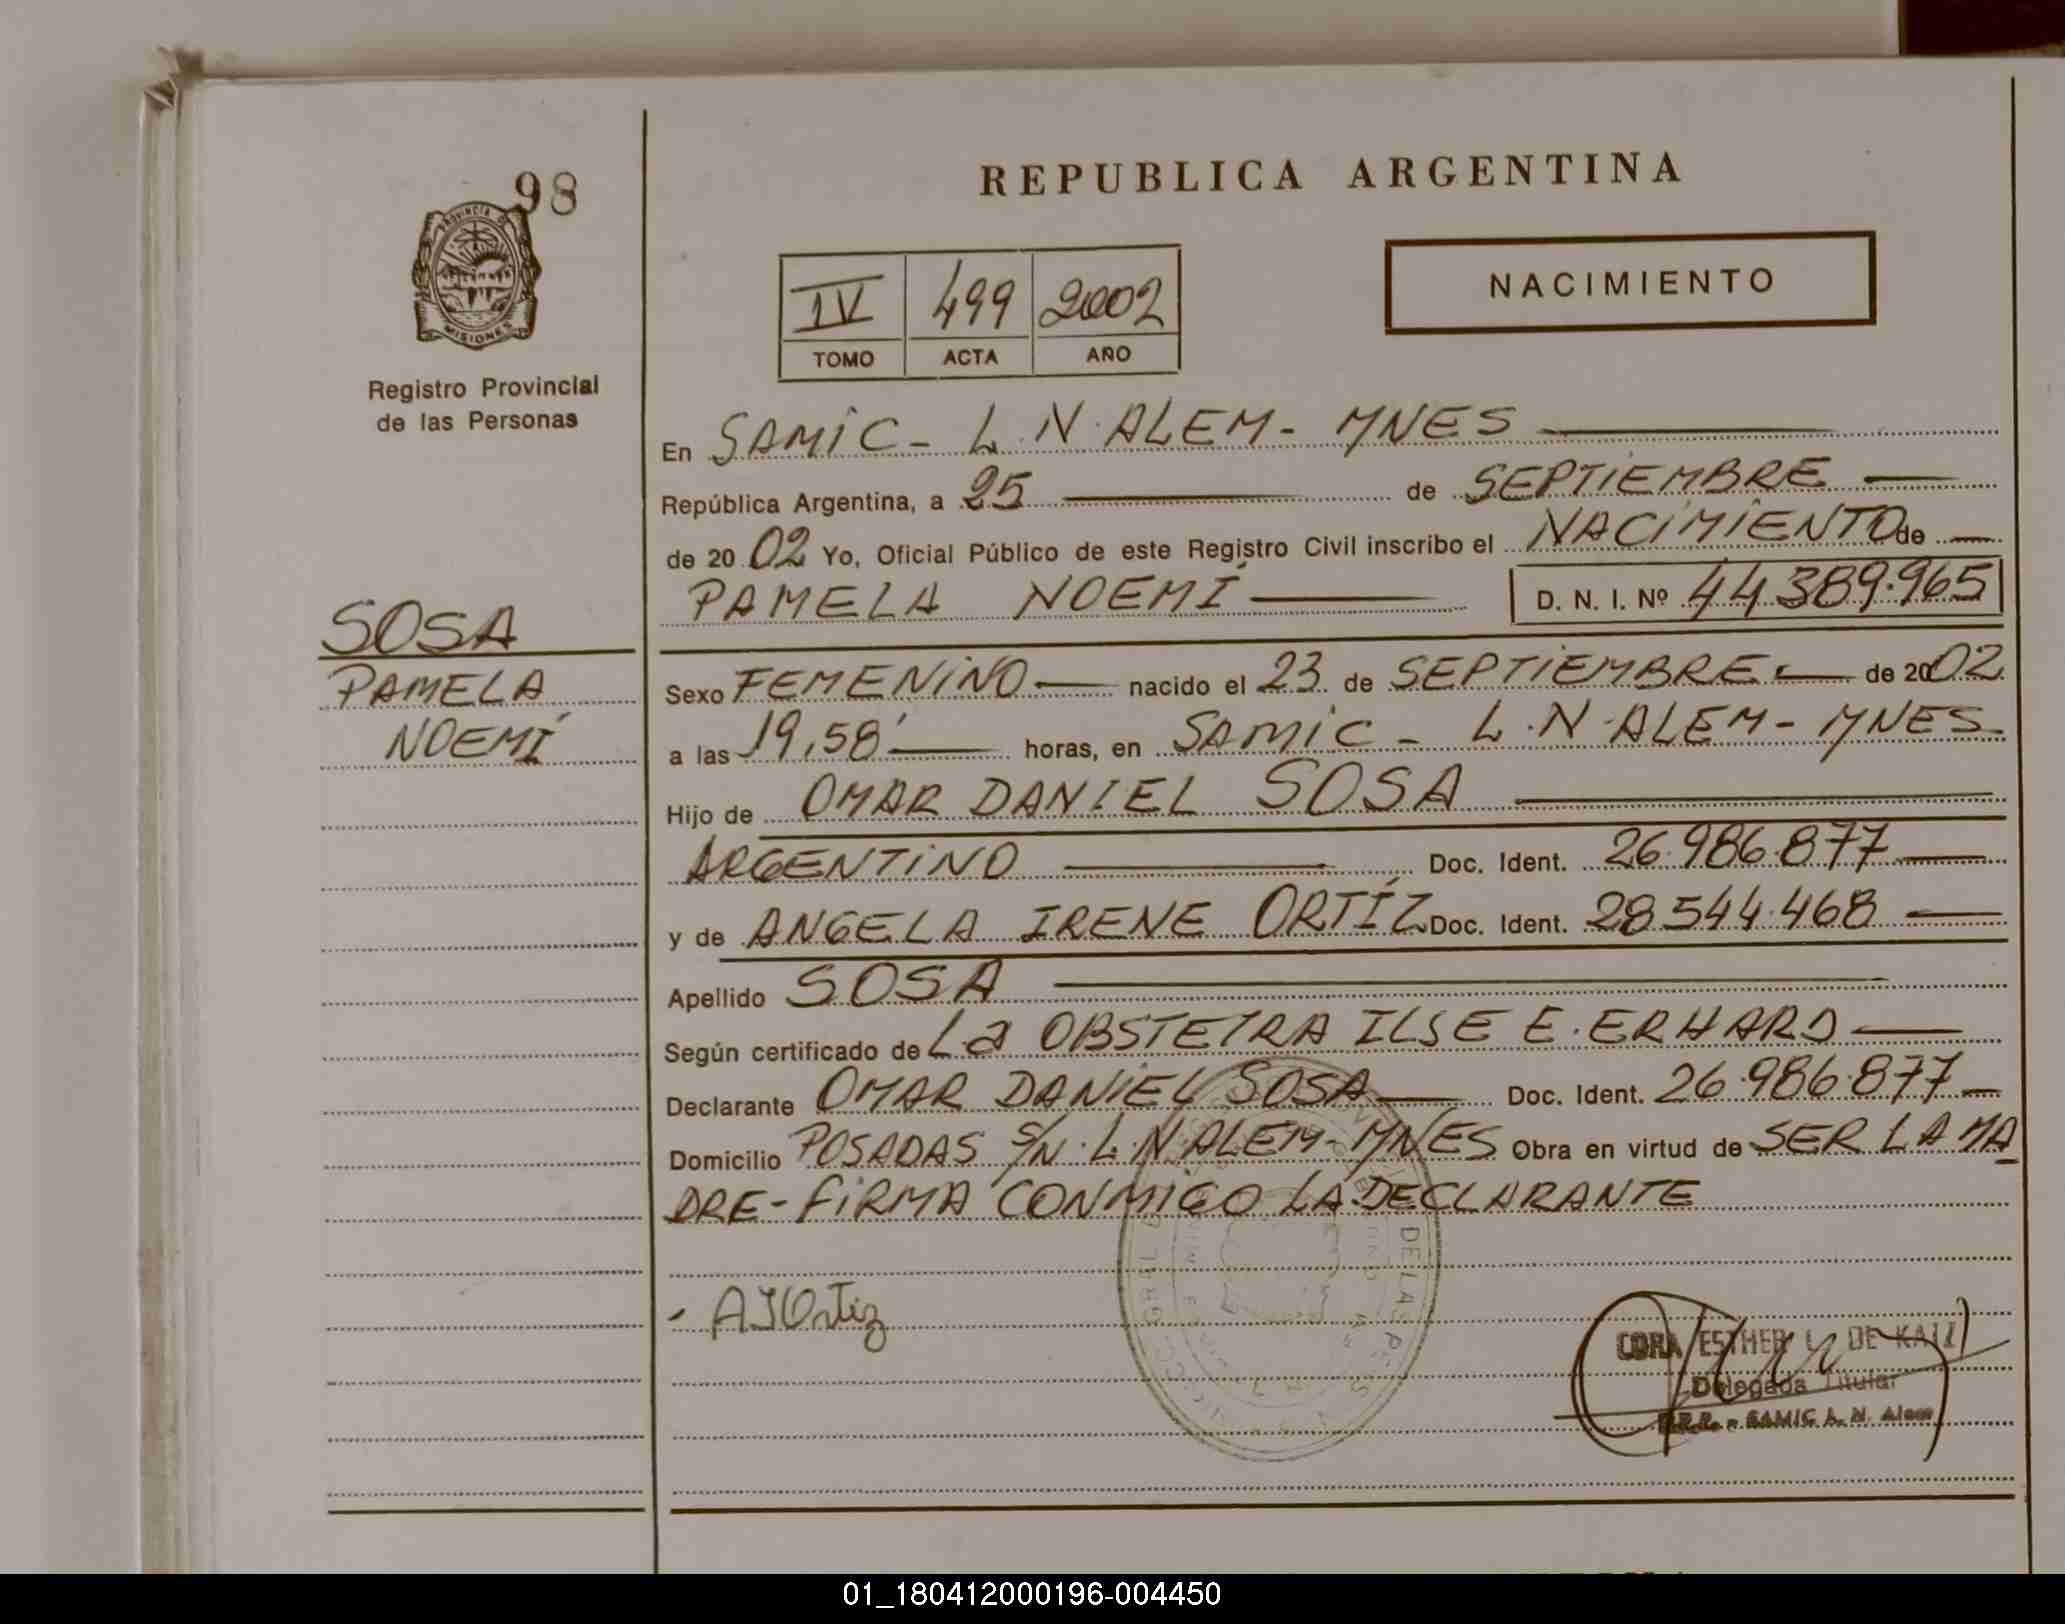 98
PROVINCIA DE
MISIONES
Registro Provincial
de las Personas
REPUBLICA ARGENTINA
NACIMIENTO
IV 499 2002
TOMO ACTA AÑO
En SAMIC - L.N. ALEM - MNES
República Argentina, a 25 de SEPTIEMBRE
de 2002 Yo, Oficial Público de este Registro Civil inscribo el NACIMIENTO de
PAMELA NOEMÍ D. N. I. Nº 44.389.965
SOSA
PAMELA
NOEMÍ
Sexo FEMENINO nacido el 23 de SEPTIEMBRE de 2002
a las 19,58' horas, en SAMIC - L.N. ALEM - MNES
Hijo de OMAR DANIEL SOSA
ARGENTINO Doc. Ident. 26.986.877
y de ANGELA IRENE ORTÍZ Doc. Ident. 28.544.468
Apellido SOSA
Según certificado de La OBSTETRA ILSE E. ERHARD
Declarante OMAR DANIEL SOSA Doc. Ident. 26.986.877
Domicilio POSADAS S/N. L.N. ALEM - MNES Obra en virtud de SER LA MA
DRE - FIRMA CONMIGO LA DECLARANTE
DE LAS
AIOrtiz
CORA ESTHER L. DE
Delegada Titular
SAMIC L. N. Alem
01_180412000196-004450